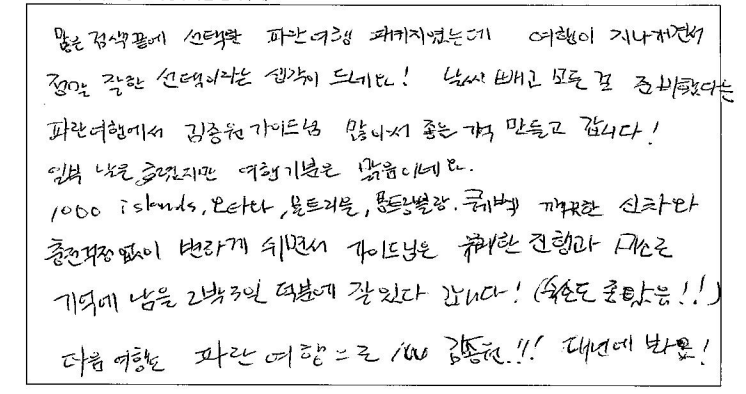 많은 검색끝에 선택한 파란여행 패키지였는데 여행이 지나가면서
정말 잘한 선택이라는 생각이 드네요! 날씨 빼고 모든 걸 준비했다는
파란여행에서 김종원 가이드님 만나서 좋은 기억 만들고 갑니다!
일부 날은 흐렸지만 여행기분은 맑음이네요.
1000 islands, 오타와, 몬트리올, 몽트랑블랑. 퀘벡 깨끗한 신차와
충전걱정없이 편하게 쉬면서 가이드님은 유쾌한 진행과 미소로
기억에 남을 2박3일 덕분에 잘있다 갑니다! (숙소도 좋았음!!)
다음 여행도 파란여행으로 김종원!!! 내년에 봐요!